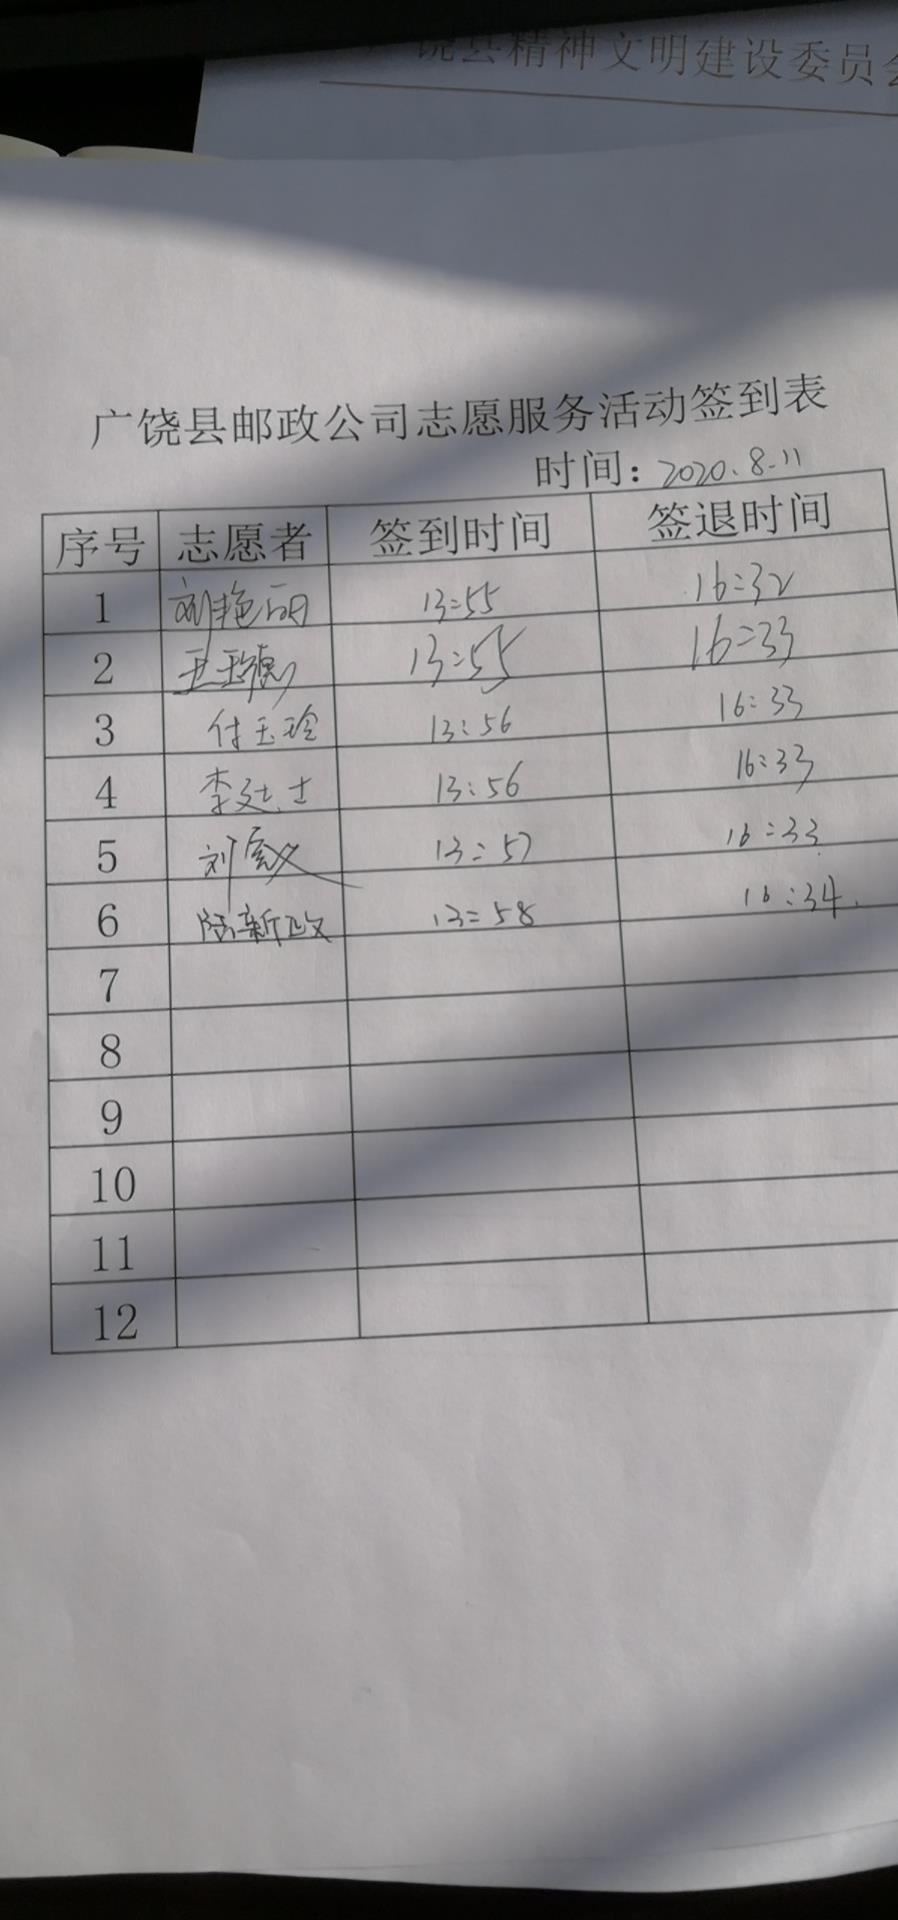 饶县精神文明建设委员会
广饶县邮政公司志愿服务活动签到表
时间：2020.8.11
序号 志愿者 签到时间 签退时间
1 刘艳丽 13:55 16:32
2 王 13:55 16:33
3 付玉玲 13:56 16:33
4 李廷士 13:56 16:33
5 刘 13:57 16:33
6 陆新政 13:58 16:34
7
8
9
10
11
12